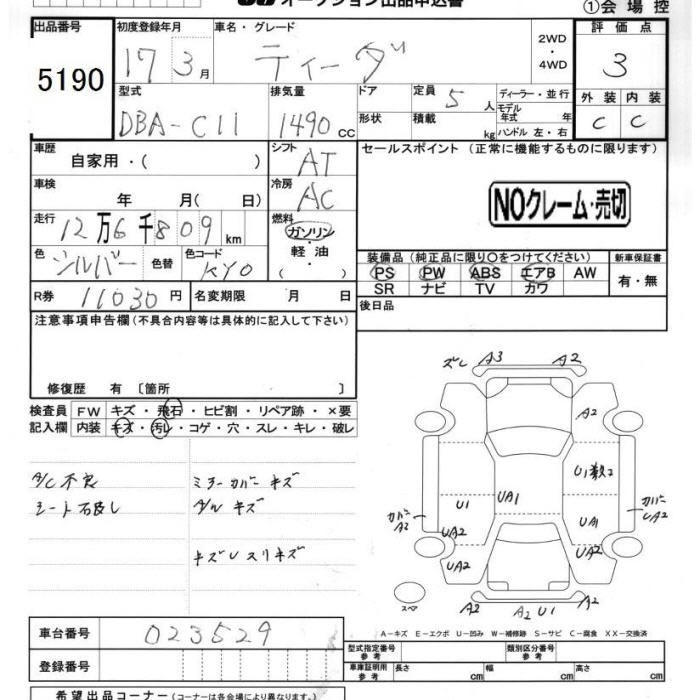 オークション出品申込書
①会場控
出品番号 初度登録年月 車名・グレード 2WD・4WD 評価点
5190 17 3月 ティーダ 3
型式 排気量 ドア 定員 5人 ディーラー・並行 外装 内装
DBA-C11 1490cc 形状 積載 kg モデル年式 年 ハンドル 左・右 C C
車歴 シフト セールスポイント (正常に機能するものに限ります)
自家用・( ) AT
車検 冷房
年 月( 日) AC NOクレーム・売切
走行 燃料
12万6千809km ガソリン・軽油・( )
色 色替 色コード 装備品 (純正品に限り○をつけてください) 新車保証書
シルバー KY0 PS PW ABS エアB AW 有・無
SR ナビ TV カワ
R券 11030円 名変期限 月 日 後日品
注意事項申告欄 (不具合内容等は具体的に記入して下さい)
修復歴 有 〔箇所 〕
検査員 FW キズ・飛石・ヒビ割・リペア跡・×要
記入欄 内装 キズ・汚レ・コゲ・穴・スレ・キレ・破レ
A/C不良 ミラーカバーキズ
キズUスリキズ
ズレ A3 A2
A2
U1数2
U1 UA1
カバーA2 UA2 UA1 カバーUA2
UA2 UA2
スペア A2 A2 U1 A2
A-キズ E-エクボ U-凹み W-補修跡 S-サビ C-腐食 XX-交換済
車台番号 023529
登録番号
型式指定番号 参考 類別区分番号 参考
車庫証明用 参考 長さ cm 幅 cm 高さ cm
希望出品コーナー (コーナーは各会場により異なります。)